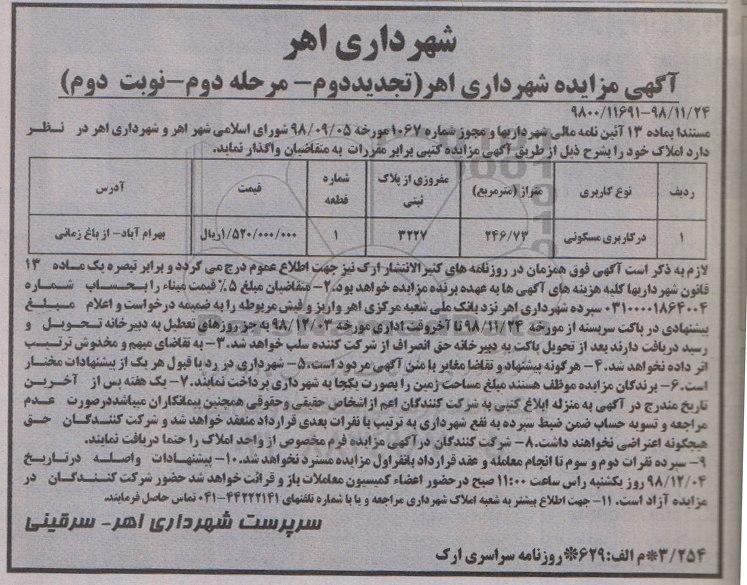 شهرداری اهر
آگهی مزایده شهرداری اهر(تجدیددوم- مرحله دوم-نوبت دوم)
۹۸۰۰/۱۱۶۹۱-۹۸/۱۱/۲۴
مستندا بماده ۱۳ آئین نامه مالی شهرداریها و مجوز شماره ۱۰۶۷ مورخه ۹۸/۰۹/۰۵ شورای اسلامی شهر اهر و شهرداری اهر در نظر
دارد املاک خود را بشرح ذیل از طریق آگهی مزایده کتبی برابر مقررات به متقاضیان واگذار نماید.
ردیف نوع کاربری متراژ (مترمربع) مفروزی از پلاک ثبتی شماره قطعه قیمت آدرس
۱ درکاربری مسکونی ۲۴۶/۷۳ ۳۲۲۷ ۱ ۱/۵۲۰/۰۰۰/۰۰۰ریال بهرام آباد- از باغ زمانی
لازم به ذکر است آگهی فوق همزمان در روزنامه های کثیرالانتشار ارک نیز جهت اطلاع عموم درج می گردد و برابر تبصره یک ماده ۱۳
قانون شهرداریها کلیه هزینه های آگهی ها به عهده برنده مزایده خواهد بود.۲- متقاضیان مبلغ ۵٪ قیمت میناء را بحساب شماره
۰۳۱۰۰۰۰۱۸۶۴۰۰۴ سپرده شهرداری اهر نزد بانک ملی شعبه مرکزی اهر واریز و فیش مربوطه را به ضمیمه درخواست و اعلام مبلغ
پیشنهادی در پاکت سربسته از مورخه ۹۸/۱۱/۲۴ تا آخروقت اداری مورخه ۹۸/۱۲/۰۳ به جز روزهای تعطیل به دبیرخانه تحویل و
رسید دریافت دارند بعد از تحویل پاکت به دبیرخانه حق انصراف از شرکت کننده سلب خواهد شد.۳- به تقاضای مبهم و مخدوش ترتیب
اثر داده نخواهد شد.۴- هرگونه پیشنهاد و تقاضا مغایر با متن آگهی مردود است.۵- شهرداری در رد یا قبول هر یک از پیشنهادات مختار
است.۶- برندگان مزایده موظف هستند مبلغ مساحت زمین را بصورت یکجا به شهرداری پرداخت نمایند.۷- یک هفته پس از آخرین
تاریخ مندرج در آگهی به منزله ابلاغ کتبی به شرکت کنندگان اعم از اشخاص حقیقی و حقوقی همچنین پیمانکاران میباشددرصورت عدم
مراجعه و تسویه حساب ضمن ضبط سپرده به نفع شهرداری به ترتیب با نفرات بعدی قرارداد منعقد خواهد شد و شرکت کنندگان حق
هیچگونه اعتراضی نخواهند داشت.۸- شرکت کنندگان درآگهی مزایده فرم مخصوص از واحد املاک را حتما دریافت نمایند.
۹- سپرده نفرات دوم و سوم تا انجام معامله و عقد قرارداد بانفراول مزایده مسترد نخواهد شد.۱۰- پیشنهادات واصله درتاریخ
۹۸/۱۲/۰۴ روز یکشنبه راس ساعت ۱۱:۰۰ صبح درحضور اعضاء کمیسیون معاملات باز و قرائت خواهد شد حضور شرکت کنندگان در
مزایده آزاد است.۱۱- جهت اطلاع بیشتر به شعبه املاک شهرداری مراجعه و یا با شماره تلفنهای ۰۴۱-۴۴۲۲۲۱۴۱ تماس حاصل فرمایند.
سرپرست شهرداری اهر- سرقینی
۳/۲۵۴*م الف:۶۲۹*روزنامه سراسری ارک